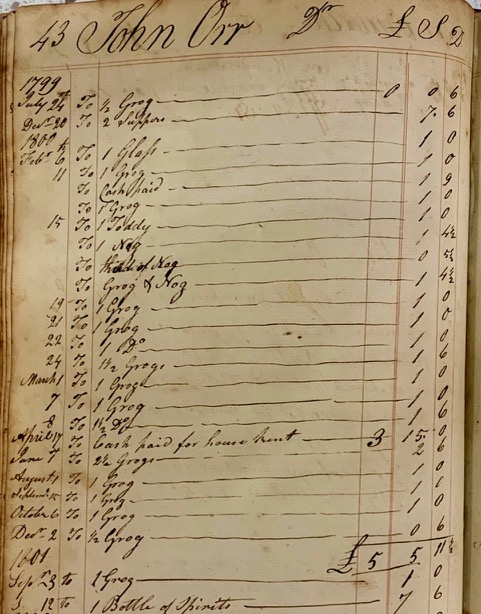 43 John Orr Dr £ S D
1799
July 24th To ½ Grog 0 0 6
Decr 20 To 2 Suppers 7 6
1800
Febr 6th To 1 Glass 1 0
11 To 1 Grog 1 0
To Cash paid 1 9
To 1 Grog 1 0
15 To 1 Toddy 1 0
To 1 Nog 1 4½
To third of Nog 0 5½
To Grog & Nog 1 4½
19 To 1 Grog 1 0
21 To 1 Grog 1 0
22 To 1 Do 1 0
24 To 1½ Grogs 1 6
March 1 To 1 Grog 1 0
7 To 1 Grog 1 0
8 To 1½ Do 1 6
April 17 To Cash paid for house Rent 3 15 0
June 7 To 2½ Grogs 2 6
August 1 To 1 Grog 1 0
Septemr 15 To 1 Grog 1 0
October 6 To 1 Grog 1 0
Decr 2 To ½ Grog 0 6
£ 5 5 11½
1801
Sepr 23 to 1 Grog 1 0
12 to 1 Bottle of Spirits 7 6